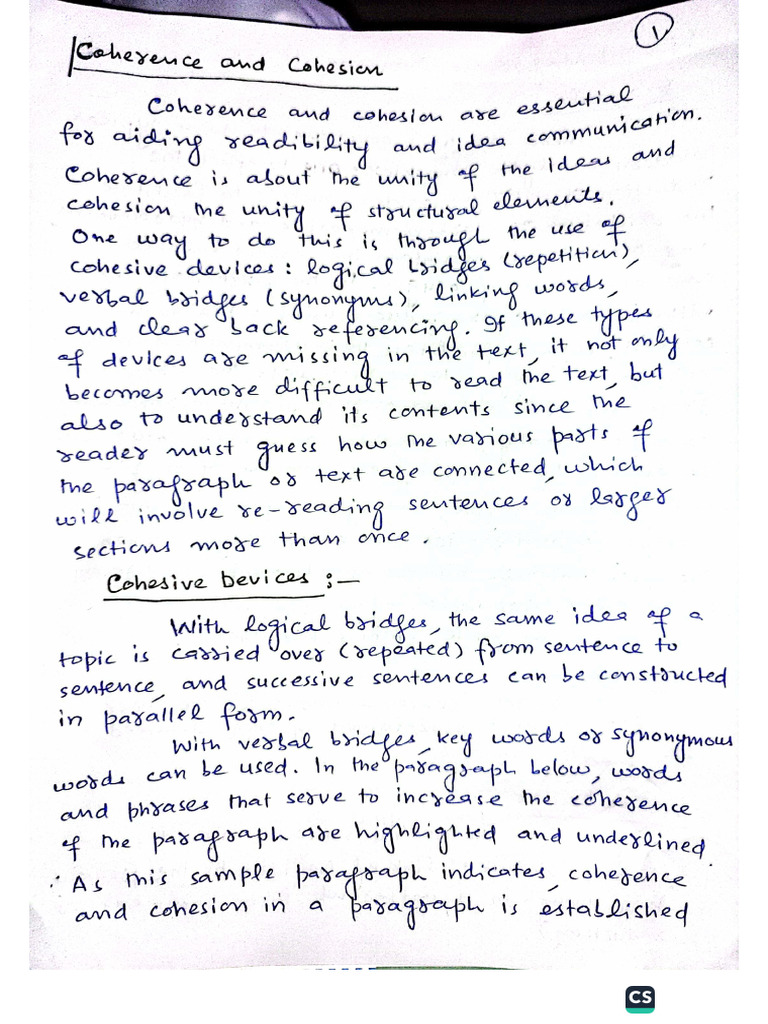 1
Coherence and Cohesion
Coherence and cohesion are essential
for aiding readibility and idea communication.
Coherence is about the unity of the ideas and
cohesion the unity of structural elements.
One way to do this is through the use of
cohesive devices: logical bridges (repetition),
verbal bridges (synonyms), linking words,
and clear back referencing. If these types
of devices are missing in the text, it not only
becomes more difficult to read the text, but
also to understand its contents since the
reader must guess how the various parts of
the paragraph or text are connected, which
will involve re-reading sentences or larger
sections more than once.
Cohesive Devices :-
With logical bridges, the same idea of a
topic is carried over (repeated) from sentence to
sentence, and successive sentences can be constructed
in parallel form.
With verbal bridges, key words or synonymous
words can be used. In the paragraph below, words
and phrases that serve to increase the coherence
of the paragraph are highlighted and underlined.
∴ As this sample paragraph indicates, coherence
and cohesion in a paragraph is established
CS